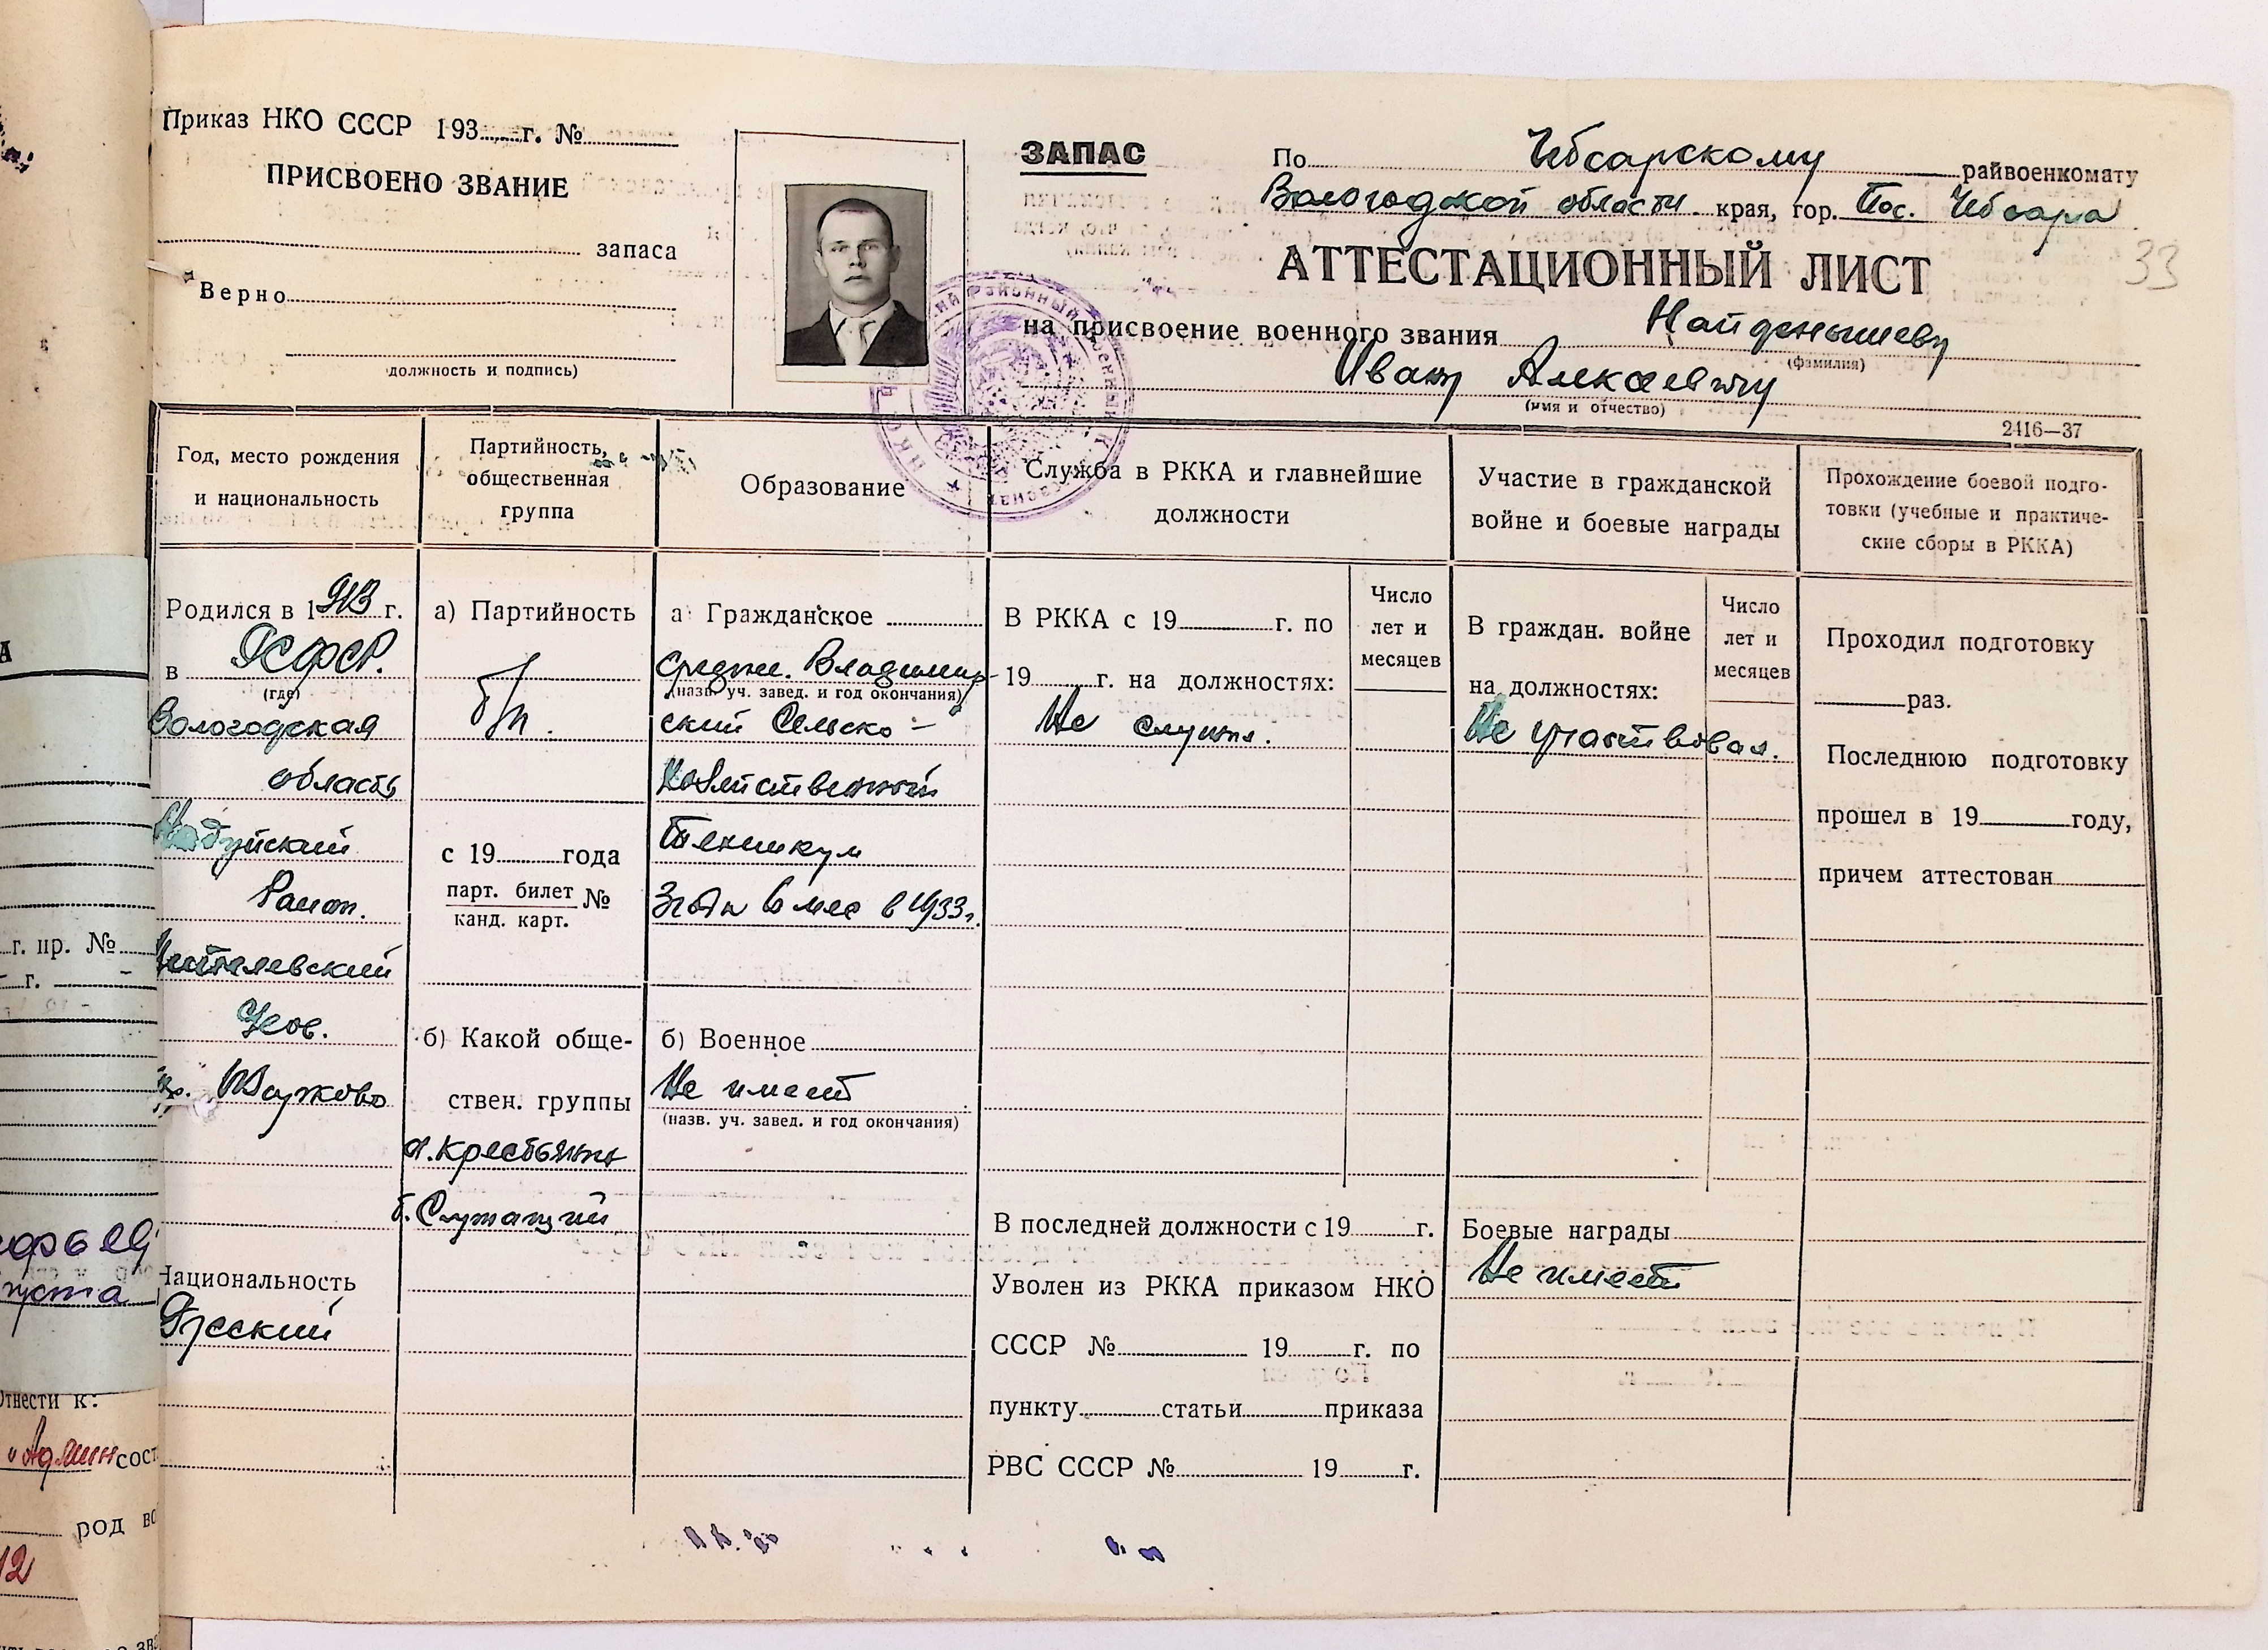 Приказ НКО СССР 193 г. №
ПРИСВОЕНО ЗВАНИЕ
запаса
Верно
(должность и подпись)
ЗАПАС
По Чебсарскому райвоенкомату
Вологодской области края, гор. Пос. Чебсара
АТТЕСТАЦИОННЫЙ ЛИСТ
33
на присвоение военного звания Найденышеву
(фамилия)
Ивану Алексеевичу
(имя и отчество)
2416—37
Год, место рождения
и национальность
Родился в 1913 г.
в РСФСР.
(где)
Вологодская
область
Район.
д. Шужково
Национальность
Русский
Партийность,
общественная
группа
а) Партийность
б/п.
с 19 года
парт. билет №
канд. карт.
б) Какой обще-
ствен. группы
а. Крестьянин
б. Служащий
Образование
а) Гражданское
Средне. Владимир-
(назв. уч. завед. и год окончания)
ский Сельско-
Хозяйственный
Техникум
3 года 6 мес в 1933г.
б) Военное
Не имеет
(назв. уч. завед. и год окончания)
Служба в РККА и главнейшие
должности
В РККА с 19 г. по
19 г. на должностях:
Не служил.
Число
лет и
месяцев
В последней должности с 19 г.
Уволен из РККА приказом НКО
СССР № 19 г. по
пункту статьи приказа
РВС СССР № 19 г.
Участие в гражданской
войне и боевые награды
В граждан. войне
на должностях:
Не участвовал.
Число
лет и
месяцев
Боевые награды
Не имеет
Прохождение боевой подго-
товки (учебные и практиче-
ские сборы в РККА)
Проходил подготовку
раз.
Последнюю подготовку
прошел в 19 году,
причем аттестован
г. пр. №
г.
Отнести к:
"Админ сост
род во
12